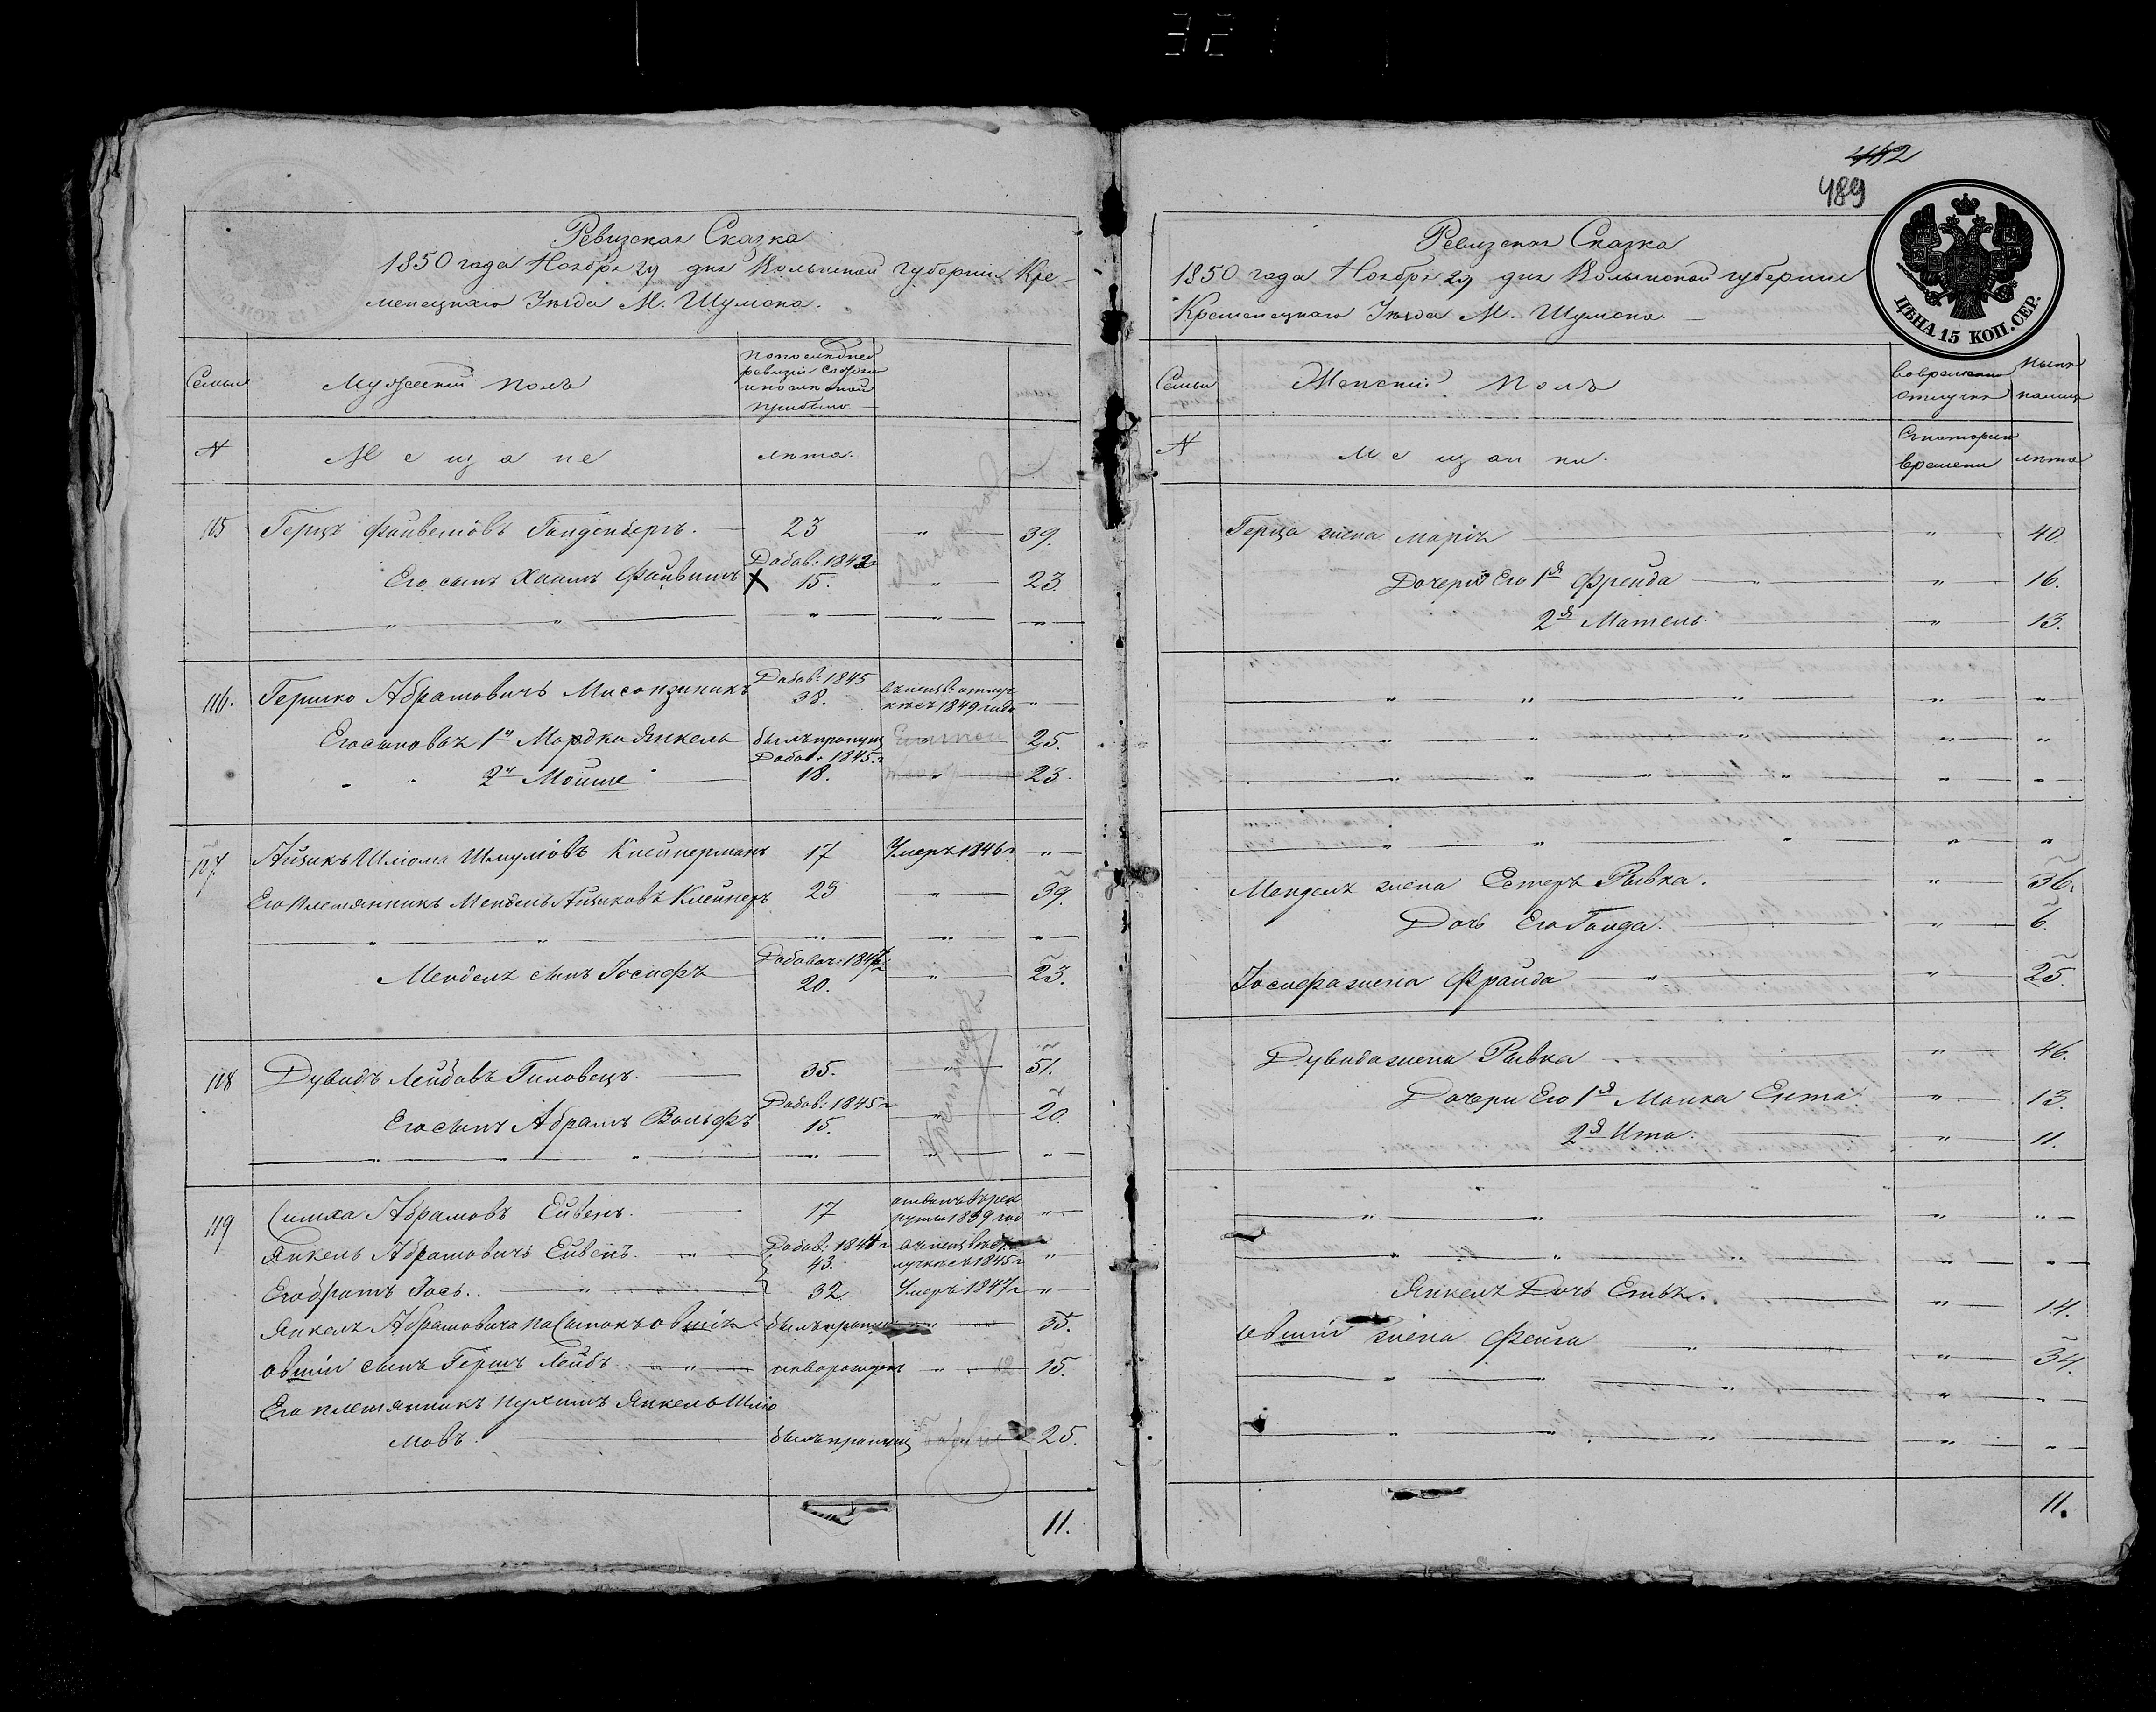 321
Ревизская Сказка
1850 года Ноября 29 дня Волынской губернии Кре-
менецкаго Уезда М. Шумска.
Семьи
Мужеский полъ
по последней
ревизии состояло
и после оной
прибыло
N
Мещане
лета.
115 Герцъ Файвелiовъ Гольденбергъ. 23 " 39.
Его сынъ Хаимъ Файвишъ Добав: 1842 г 15. " 23.
" " " " "
116. Гершко Абрамовичъ Добав: 1845 38. 1849 года "
Его сыновья 1й Мордко Янкель былъ пропущ 25.
2й Мошие Добав. 1845 г 18. " 23.
117. Айзикъ Шлiома Шмулiовъ Клейнерманъ 17 Умеръ 1846 г "
Его племянникъ Мендель Айзиковъ Клейнеръ 23 " 39.
" " " " "
Менделя сынъ Iосифъ Добавоч: 1847 г 20. " 23.
118 Дувидъ Лейбовъ Гиловецъ. 35. " 51.
Его сынъ Абрамъ Вольфъ Добав: 1845 г 15. " 20.
" " " " " "
119 Симха Абрамовъ Ейвенъ. 17 отданъ въ рек
руты 1839 год "
Янкель Абрамовичъ Ейвенъ. " Добав: 1844 г 43. 1845 г "
Его братъ Iось. " 32 Умеръ 1847 г "
Янкеля Абрамовича пасынокъ Овшiя былъ пропущ " 35.
Овшiи сынъ Гершъ Лейбъ " новорожденъ " 15.
Его племянникъ Нухимъ Янкель Шлiо
мовъ. былъ пропущ 25.
11.
412
489
ЦѢНА 15 КОП. СЕР.
Ревизская Сказка
1850 года Ноября 29 дня Волынской губернии
Кременецкаго Уезда М. Шумска.
Семьи
Женский Полъ
Во временной
отлучке
Ныне
налицо
N
Мещанки.
С котораго
времени
лета
Герца жена Марiя " 40.
Дочери Его 1я Фрейда " " 16.
2я Матель " 13.
" " " " "
" " " " "
" " " " "
" " " " "
Менделя жена Естеръ Рывка. " 36.
Дочь Его Голда. " 6.
Iосифа жена Фрайда " " 25.
Дувида жена Рывка " 46.
Дочери Его 1я Малка Ента " 13.
2я Ита. " 11.
" " " "
" " " "
Янкеля Дочь Естъя. " 14.
Овшiи жена Фейга " " 34.
" " " " "
" " " " "
11.